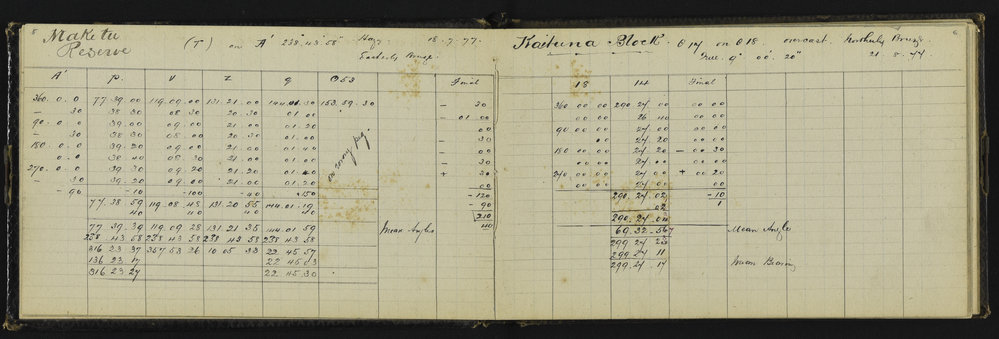 8
Maketu
Reserve
(T) on A' 238° 43' 58" Hazy 18.7.77.
Easterly Breeze.
A' p. v z q O53 Final
360.0.0 77.39.00 119.09.00 131.21.00 144.01.30 153.59.30 — 30
— 30 38 30 08 30 20.30 01 00 — 01.00
90.0.0 39.00 09.00 21.00 01.20 00
— 30 38 30 08.00 21.00 01.00 — 30
180.0.0 39.20 09.00 21.00 01 40 — 00
0.0 38 40 08.30 21.00 01.00 — 30
270.0.0 39 30 09 20 21.20 01.40 + 30
— 30 39.20 09.00 21.00 01.20 00
— 90 — 10 — 100 — 40 — 150 — 120
77.38 59 119.08 48 131.20 55 144.01.19 — 90
40 40 40 40 210
77 39.39 119.09 28 131.21 35 144.01 59 Mean Angles 40
238.43 58 238 43 58 238 43 58 238 43 58
316 23 37 357 53 26 10 05 33 22 45 57
136 23 17 22 45 03
316 23 27 22 45.30
6
Kaituna Block. θ 14 on θ 18. overcast. Northerly Breeze
True 9° 00' 20"
18 14 Final
360 00 00 290 24 00 00 00
00 00 26 40 00 00
90 00 00 24 00 00 00
00 24 20 00 00
180 00 00 24 20 — 00 30
00 00 24 00 00 00
240 00 00 24 00 + 00 20
00 00 24 00 00 00
290.24.02 — 10
02 1
290.24.04
69.32.56 Mean Angle
299 24
299 24 11
299.24.17 Mean Bearing